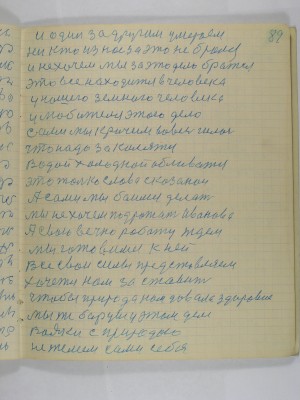 89
и один за другим умераем
ни кто из нас за это не брался
и не хочем мы за это дело братся
это все находится в человека
у нашего земного человека
и любителя этого дело
сами мы кричем во весь голос
что надо закалятся
водой холодной обливатся
это только слова сказаной
А сами мы боимся делат
мы не хочем подрожат Иванова
А свою вечно работу ждем
мы готовимся к ней
Все свои силы представляем
хочети нам за ставит
чтобы природа нам довала здоровия
мы же борцы у этом деле
Вдвоем с природою
не жалеем сами себя